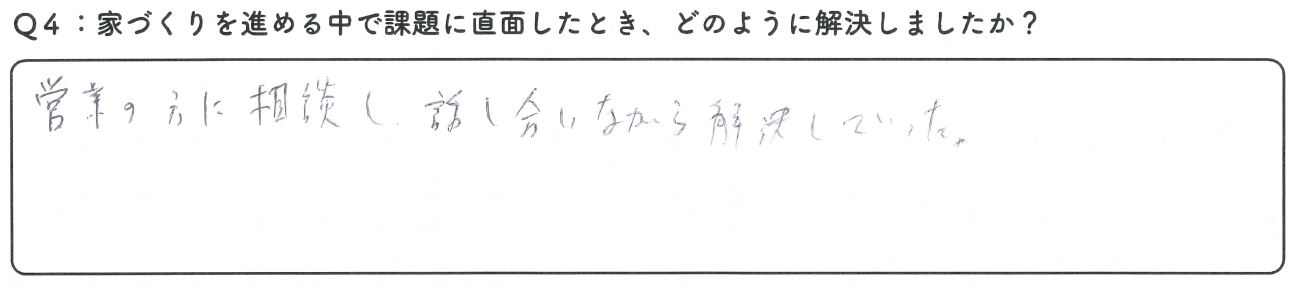 Q4：家づくりを進める中で課題に直面したとき、どのように解決しましたか？
営業の方に相談し、話し合いながら解決していった。